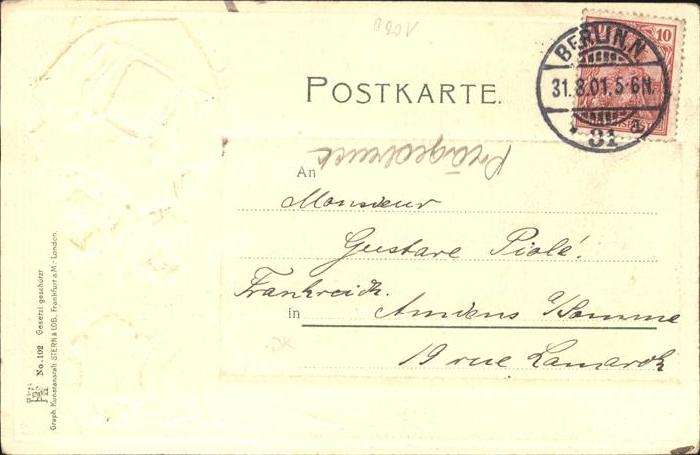 10
BERLIN.N.
31.8.01.5-6N.
31
POSTKARTE.
Prägedruck
An
Monsieur
Gustave Piolé.
Frankreich.
in Amiens a/Somme
19 rue Lamarck
No. 102 Gesetzl geschützt
Graph Kunstanstalt STERN & LÖB, Frankfurt a.M - London.